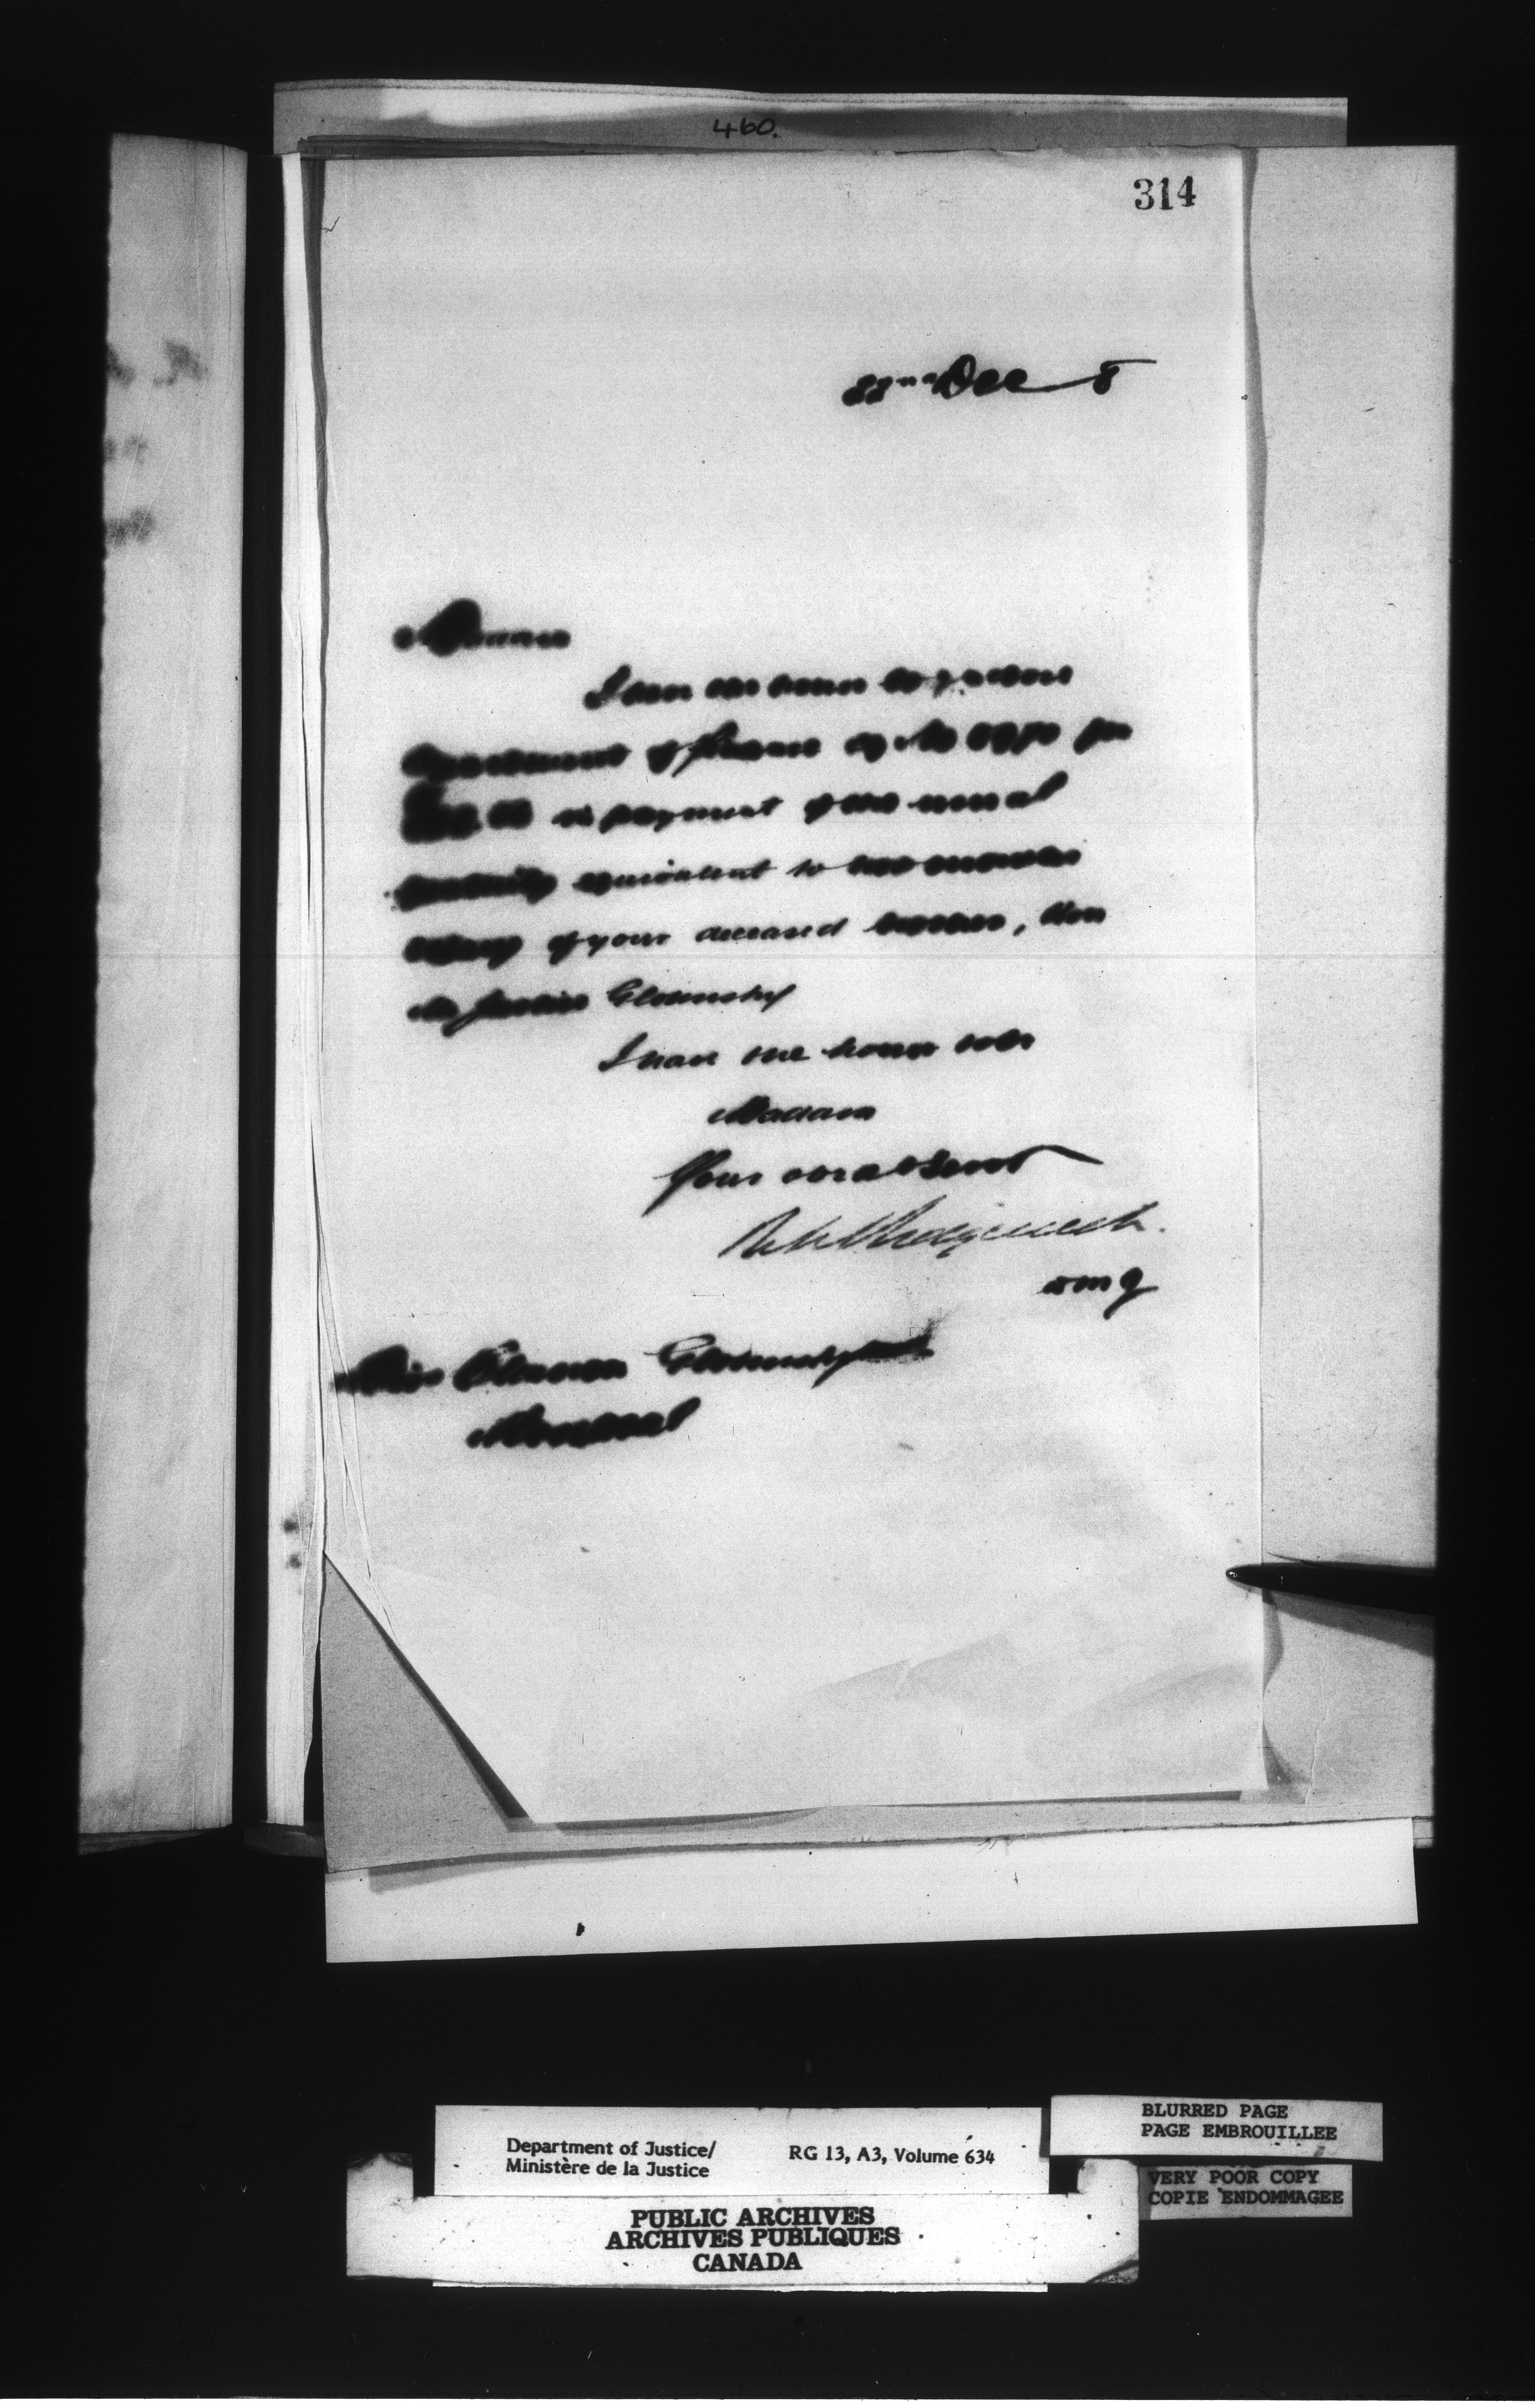 460.
314
22nd Dec 8
Madam
I have the honor to enclose
Department of Finance
in payment of the usual
gratuity equivalent to two months
salary of your deceased, Hon
Mr Justice Globensky
I have the honor to be
Madam
Your obedt Servt
R W Sedgewick.
Miss Globensky
Montreal
BLURRED PAGE
PAGE EMBROUILLEE
Department of Justice/ RG 13, A3, Volume 634
Ministère de la Justice
VERY POOR COPY
COPIE ENDOMMAGEE
PUBLIC ARCHIVES
ARCHIVES PUBLIQUES
CANADA